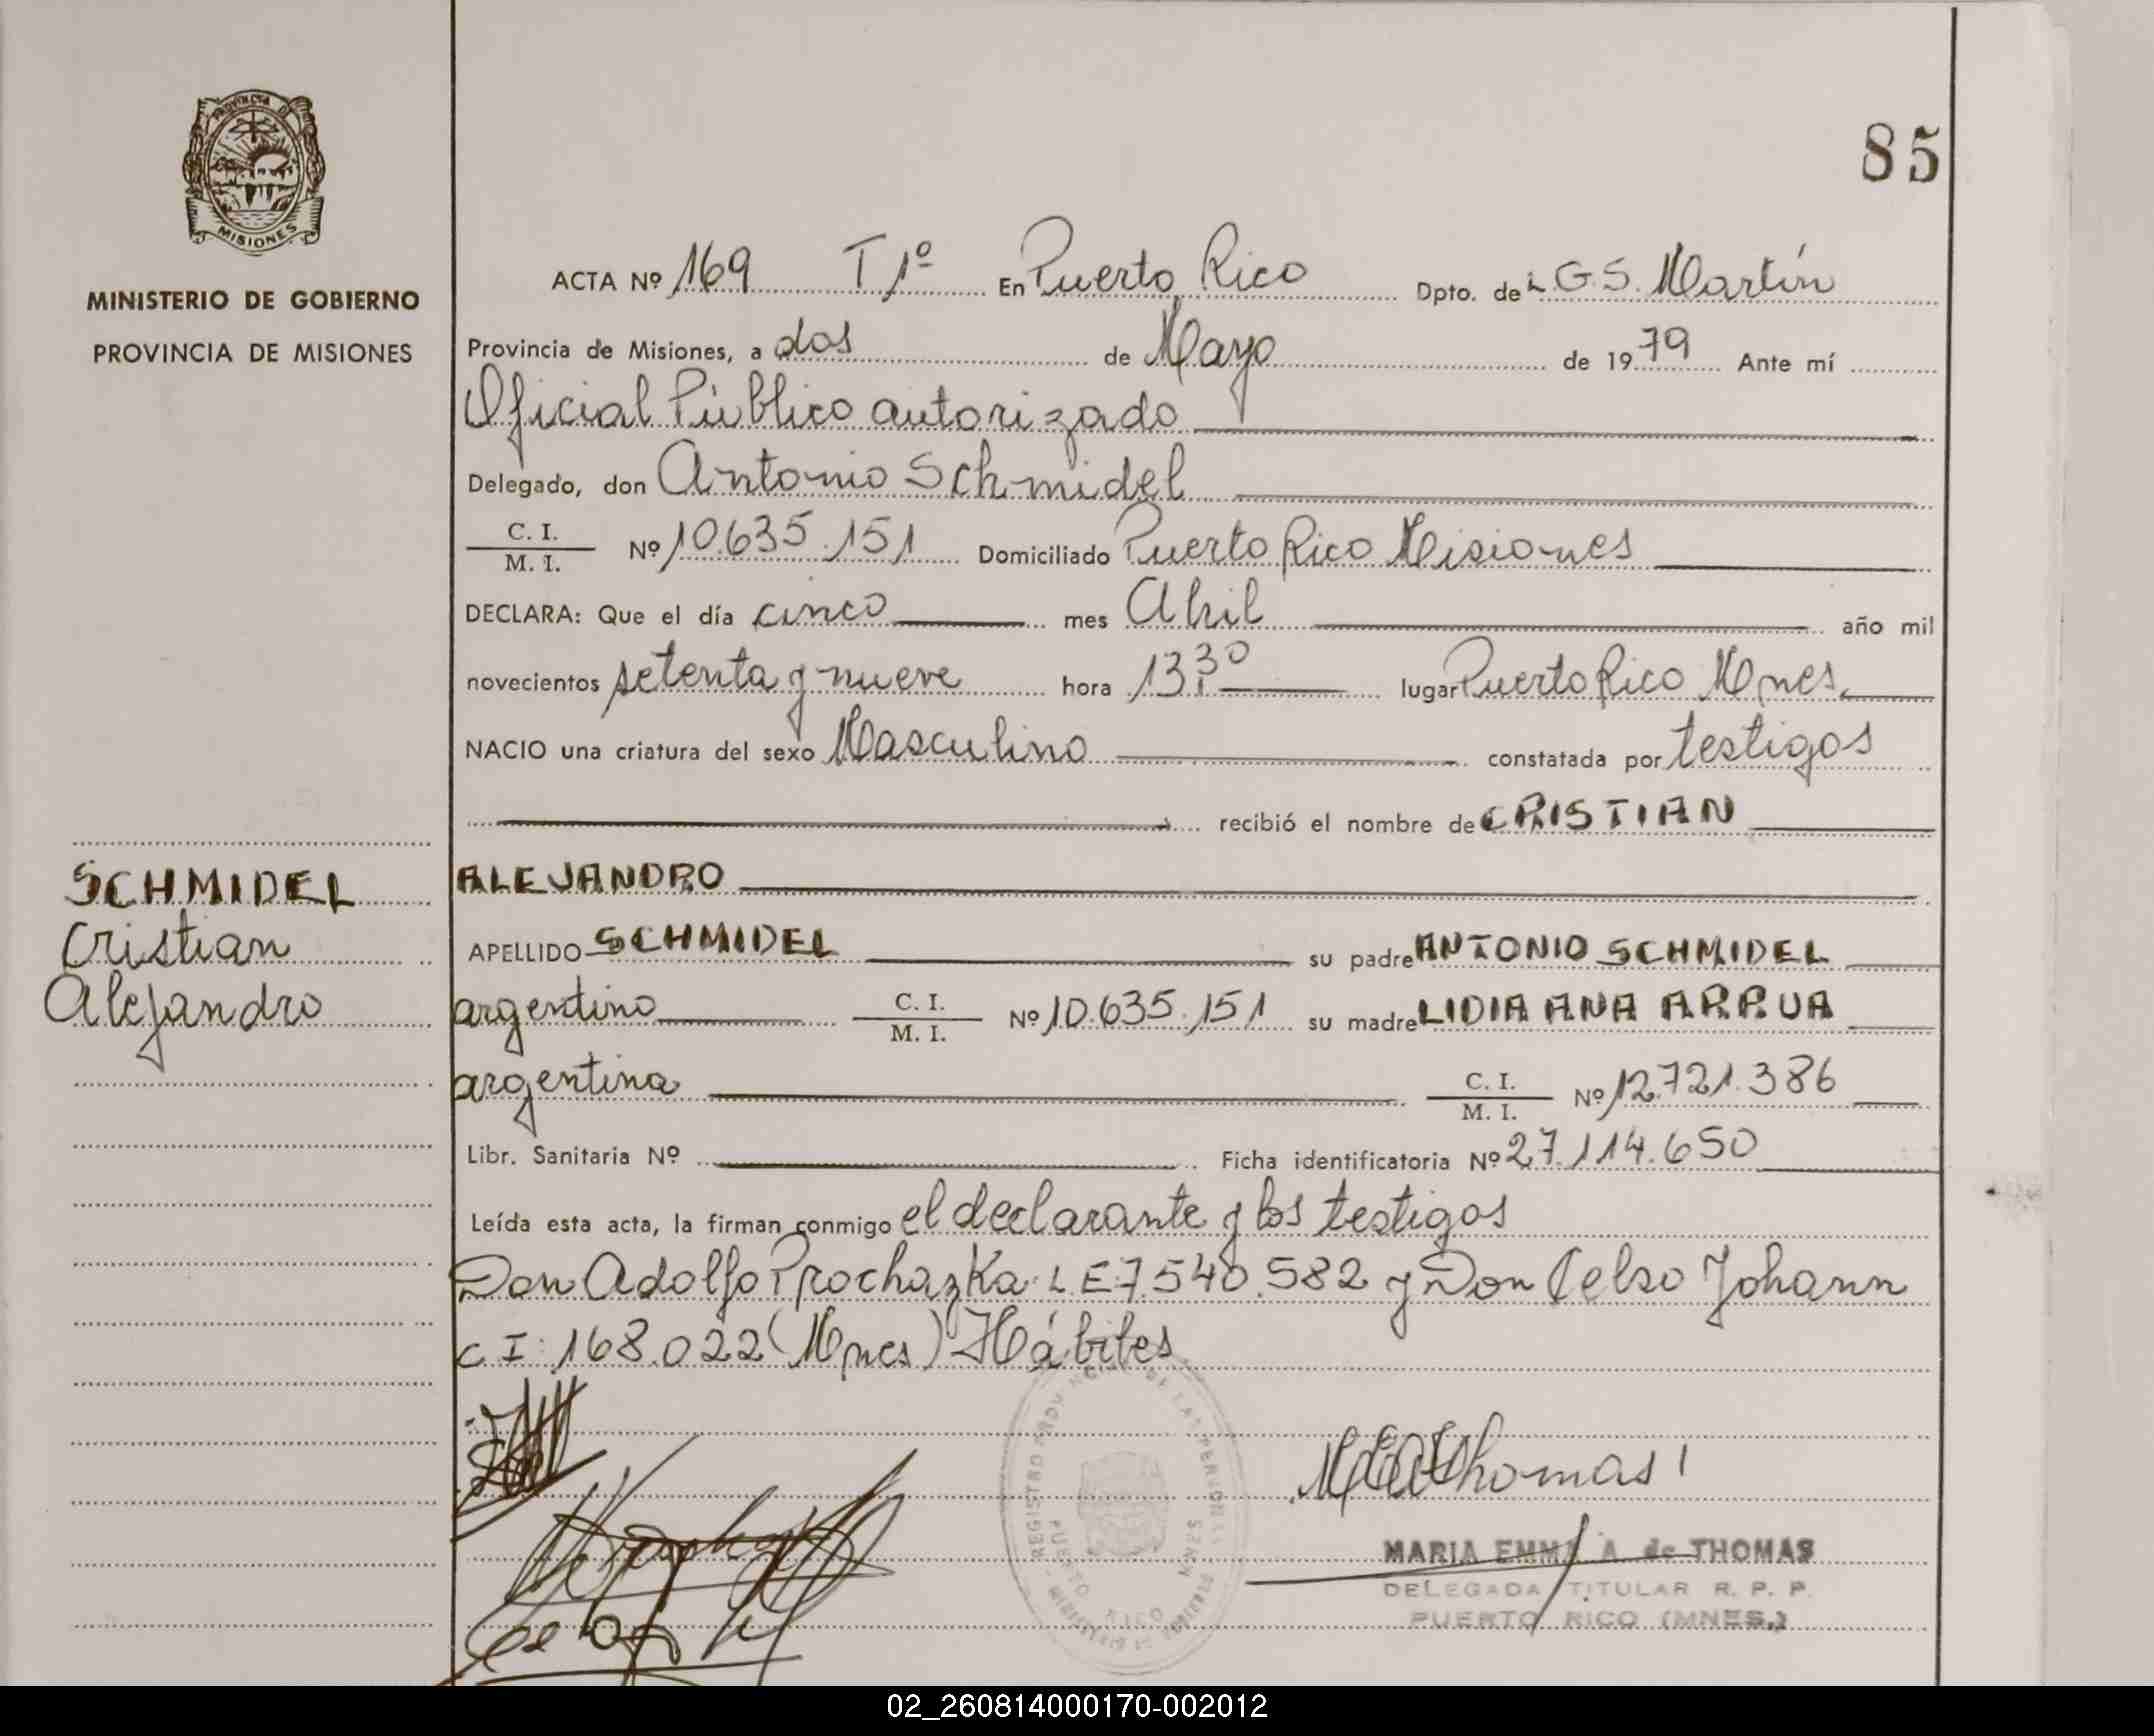 PROVINCIA DE
MISIONES
MINISTERIO DE GOBIERNO
PROVINCIA DE MISIONES
85
ACTA Nº 169 T 1º En Puerto Rico Dpto. de L.G.S. Martín
Provincia de Misiones, a dos de Mayo de 1979 Ante mí
Oficial Público autorizado
Delegado, don Antonio Schmidel
C. I.
M. I. Nº 10.635.151 Domiciliado Puerto Rico Misiones
DECLARA: Que el día cinco mes Abril año mil
novecientos setenta y nueve hora 13:30 lugar Puerto Rico Mnes.
NACIO una criatura del sexo Masculino constatada por testigos
recibió el nombre de CRISTIAN
ALEJANDRO
SCHMIDEL
Cristian
Alejandro
APELLIDO SCHMIDEL su padre ANTONIO SCHMIDEL
argentino C. I.
M. I. Nº 10.635.151 su madre LIDIA ANA ARRUA
argentina C. I.
M. I. Nº 12.721.386
Libr. Sanitaria Nº Ficha identificatoria Nº 27.114.650
Leída esta acta, la firman conmigo el declarante y los testigos
Don Adolfo Prochazka L.E 7.540.582 y Don Celso Johann
C I: 168.022 (Mnes) Hábiles
MEAdeThomas
MARIA EMMA A. de THOMAS
DELEGADA TITULAR R. P. P.
PUERTO RICO (MNES.)
REGISTRO PROV DE LAS PERSONAS
PUERTO RICO MNES
02_260814000170-002012